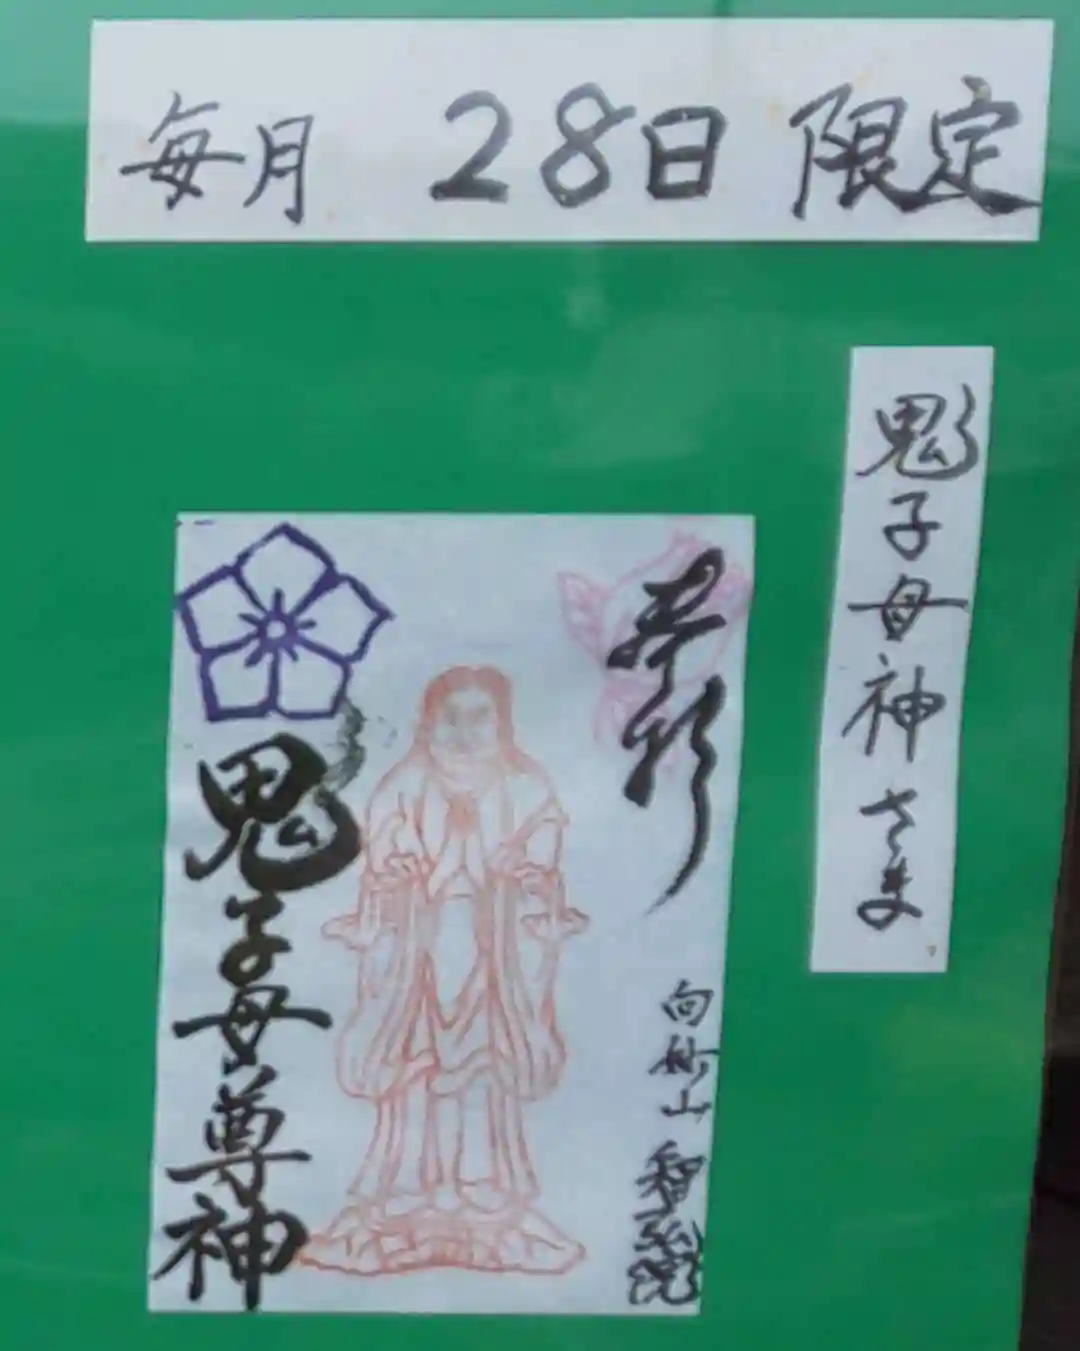 毎月 28日 限定
鬼子母神さま
奉拝
向妙山 智弘院
鬼子母尊神